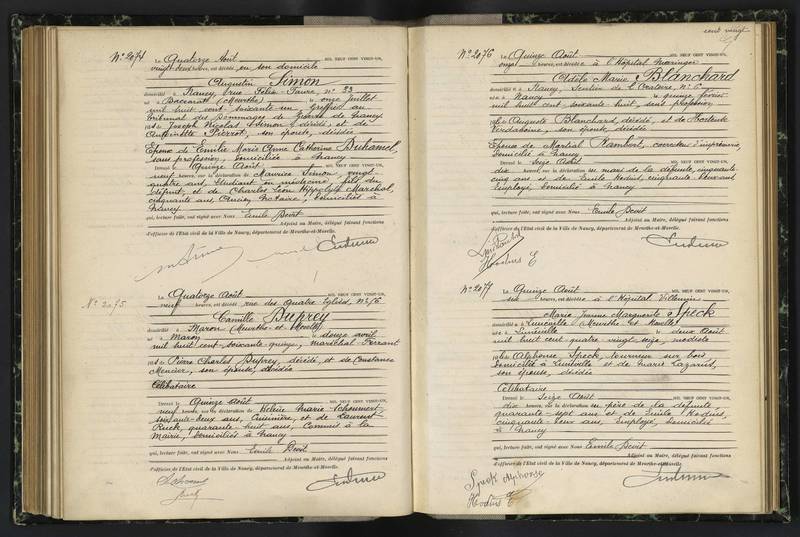 cent vingt
N° 2074
Le Quatorze Août MIL NEUF CENT VINGT-UN,
vingt-deux heures, est décédé, en son domicile
Augustin Simon
domicilié à Nancy, rue Félix-Faure, n° 33
né à Baccarat (Meurthe) le onze juillet
mil huit cent soixante un, Greffier au
Tribunal des Dommages de Guerre de Nancy
fils de Joseph Nicolas Simon, décédé, et de
Antoinette Pierrot, son épouse, décédée
Epoux de Emilie Marie Anne Catherine Duhamel,
sans profession, domiciliée à Nancy
Dressé le Quinze Août MIL NEUF CENT VINGT-UN,
neuf heures, sur la déclaration de Maurice Simon, vingt-
quatre ans, étudiant en médecine, fils du
défunt, et de Charles Léon Hippolyte Marchal,
cinquante ans, Ancien Notaire, domiciliés à
Nancy
qui, lecture faite, ont signé avec Nous Emile
Adjoint au Maire, délégué faisant fonctions
d'officier de l'Etat civil de la Ville de Nancy, département de Meurthe-et-Moselle.
N° 2075
Le Quatorze Août MIL NEUF CENT VINGT-UN,
neuf heures, est décédé rue des Quatre Eglises, N° 76
Camille Duprey
domicilié à Maron (Meurthe et Moselle)
né à Maron le douze avril
mil huit cent soixante quinze, maréchal-Ferrant
fils de Pierre Charles Duprey, décédé, et de Constance
Mercier, son épouse, décédée
Célibataire
Dressé le Quinze Août MIL NEUF CENT VINGT-UN,
neuf heures, sur la déclaration de Hélène Marie
soixante-deux ans, Cuisinière, et de Laurent
Ruck, quarante-huit ans, Commis à la
Mairie, domiciliés à Nancy
qui, lecture faite, ont signé avec Nous Emile
Adjoint au Maire, délégué faisant fonctions
d'officier de l'Etat civil de la Ville de Nancy, département de Meurthe-et-Moselle.
Ruck
N° 2076
Le Quinze Août MIL NEUF CENT VINGT-UN,
onze heures, est décédée à l'Hôpital Maringer
Odile Marie Blanchard
domiciliée à Nancy, Sentier de l'Oratoire, N° 6
née à Nancy le quinze février
mil huit cent soixante-huit, sans profession
fille de Auguste Blanchard, décédé, et de Hortense
son épouse, décédée
Epouse de Martial Rambont, correcteur d'imprimerie,
domicilié à Nancy
Dressé le Seize Août MIL NEUF CENT VINGT-UN,
dix heures, sur la déclaration du mari de la défunte, cinquante-
cinq ans et de Emile Hodius, cinquante-deux ans,
employé, domicilié à Nancy
qui, lecture faite, ont signé avec Nous Emile
Adjoint au Maire, délégué faisant fonctions
d'officier de l'Etat civil de la Ville de Nancy, département de Meurthe-et-Moselle.
Hodius E
N° 2077
Le Quinze Août MIL NEUF CENT VINGT-UN,
six heures, est décédée à l'Hôpital Villemin
Marie Jeanne Marguerite Speck
domiciliée à Lunéville (Meurthe et Moselle)
née à Lunéville le deux Août
mil huit cent quatre vingt-seize, modiste
fille de Alphonse Speck, tourneur sur bois
domicilié à Lunéville et de Marie Lazarus,
son épouse, décédée
Célibataire
Dressé le Seize Août MIL NEUF CENT VINGT-UN,
dix heures, sur la déclaration du père de la défunte
quarante-sept ans et de Emile Hodius,
cinquante-deux ans, employé, domicilié
à Nancy
qui, lecture faite, ont signé avec Nous Emile
Adjoint au Maire, délégué faisant fonctions
d'officier de l'Etat civil de la Ville de Nancy, département de Meurthe-et-Moselle.
Speck Alphonse
Hodius E